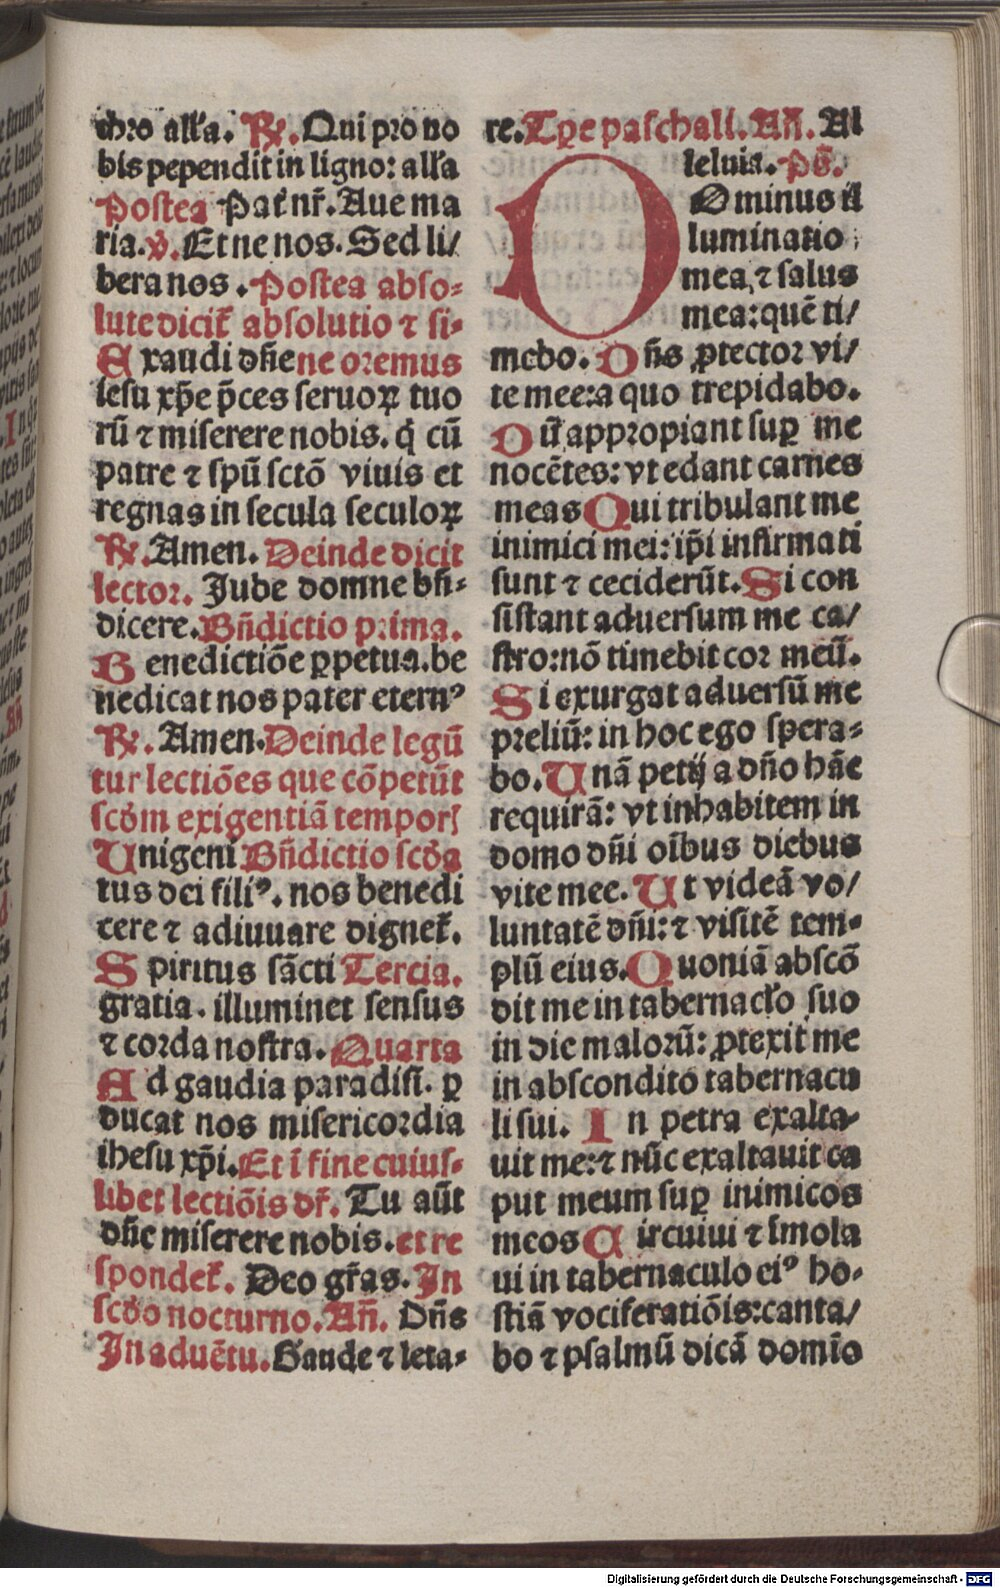 chro alľa. ℟. Qui pro no
bis pependit in ligno: alľa
Postea Pať nr̃. Aue ma
ria. ℣. Et ne nos. Sed li/
bera nos. Postea abso⸗
lute dicit̃ absolutio ⁊ si⸗
Exaudi dñe ne oremus
Iesu xp̃e p̃ces seruoꝝ tuo
rũ ⁊ miserere nobis. q̇ cũ
patre ⁊ spũ sctõ viuis et
regnas in secula seculoꝝ
℟. Amen. Deinde dicit
lector. Jube domne bñ⸗
dicere. Bñdictio prima.
Benedictiõe ꝑpetua. be
nedicat nos pater eternꝰ
℟. Amen. Deinde legũ
tur lectiões que cõpetũt
scḋm exigentiã temporꝭ
Unigeni Bñdictio scḋa
tus dei filiꝰ. nos benedi
cere ⁊ adiuuare dignet̃.
Spiritus sãcti Tercia.
gratia. illuminet sensus
⁊ corda nostra. Quarta
Ad gaudia paradisi. ꝑ
ducat nos misericordia
ihesu xp̃i. Et ĩ fine cuius⸗
libet lectiõis dr̃. Tu aũt
dñe miserere nobis. et re
spondet̃. Deo gr̃as. In
scḋo nocturno. Añ. Dñs
In aduẽtu. Gaude ⁊ leta⸗
re. Tꝑe paschali. Añ. Al
leluia. Ps̃.
Dominus il
luminatio
mea, ⁊ salus
mea: quẽ ti/
mebo. Dñs ꝓtector vi/
te mee: a quo trepidabo.
Dũ appropiant suꝑ me
nocẽtes: vt edant carnes
meas Qui tribulant me
inimici mei: ip̃i infirmati
sunt ⁊ ceciderũt. Si con
sistant aduersum me ca/
stro: nõ timebit cor meũ.
Si exurgat aduersũ me
preliũ: in hoc ego spera⸗
bo. Unã petij a dño hãc
requirã: vt inhabitem in
domo dñi oĩbus diebus
vite mee. Ut videã vo/
luntatẽ dñi: ⁊ visitẽ tem⸗
plũ eius. Quoniã abscõ
dit me in tabernacľo suo
in die malorũ: ꝓtexit me
in abscondito tabernacu
li sui. In petra exalta⸗
uit me: ⁊ nũc exaltauit ca
put meum suꝑ inimicos
meos Circuiui ⁊ ĩmola
ui in tabernaculo eiꝰ ho⸗
stiã vociferatiõis: canta/
bo ⁊ psalmũ dicã domĩo
Digitalisierung gefördert durch die Deutsche Forschungsgemeinschaft - DFG